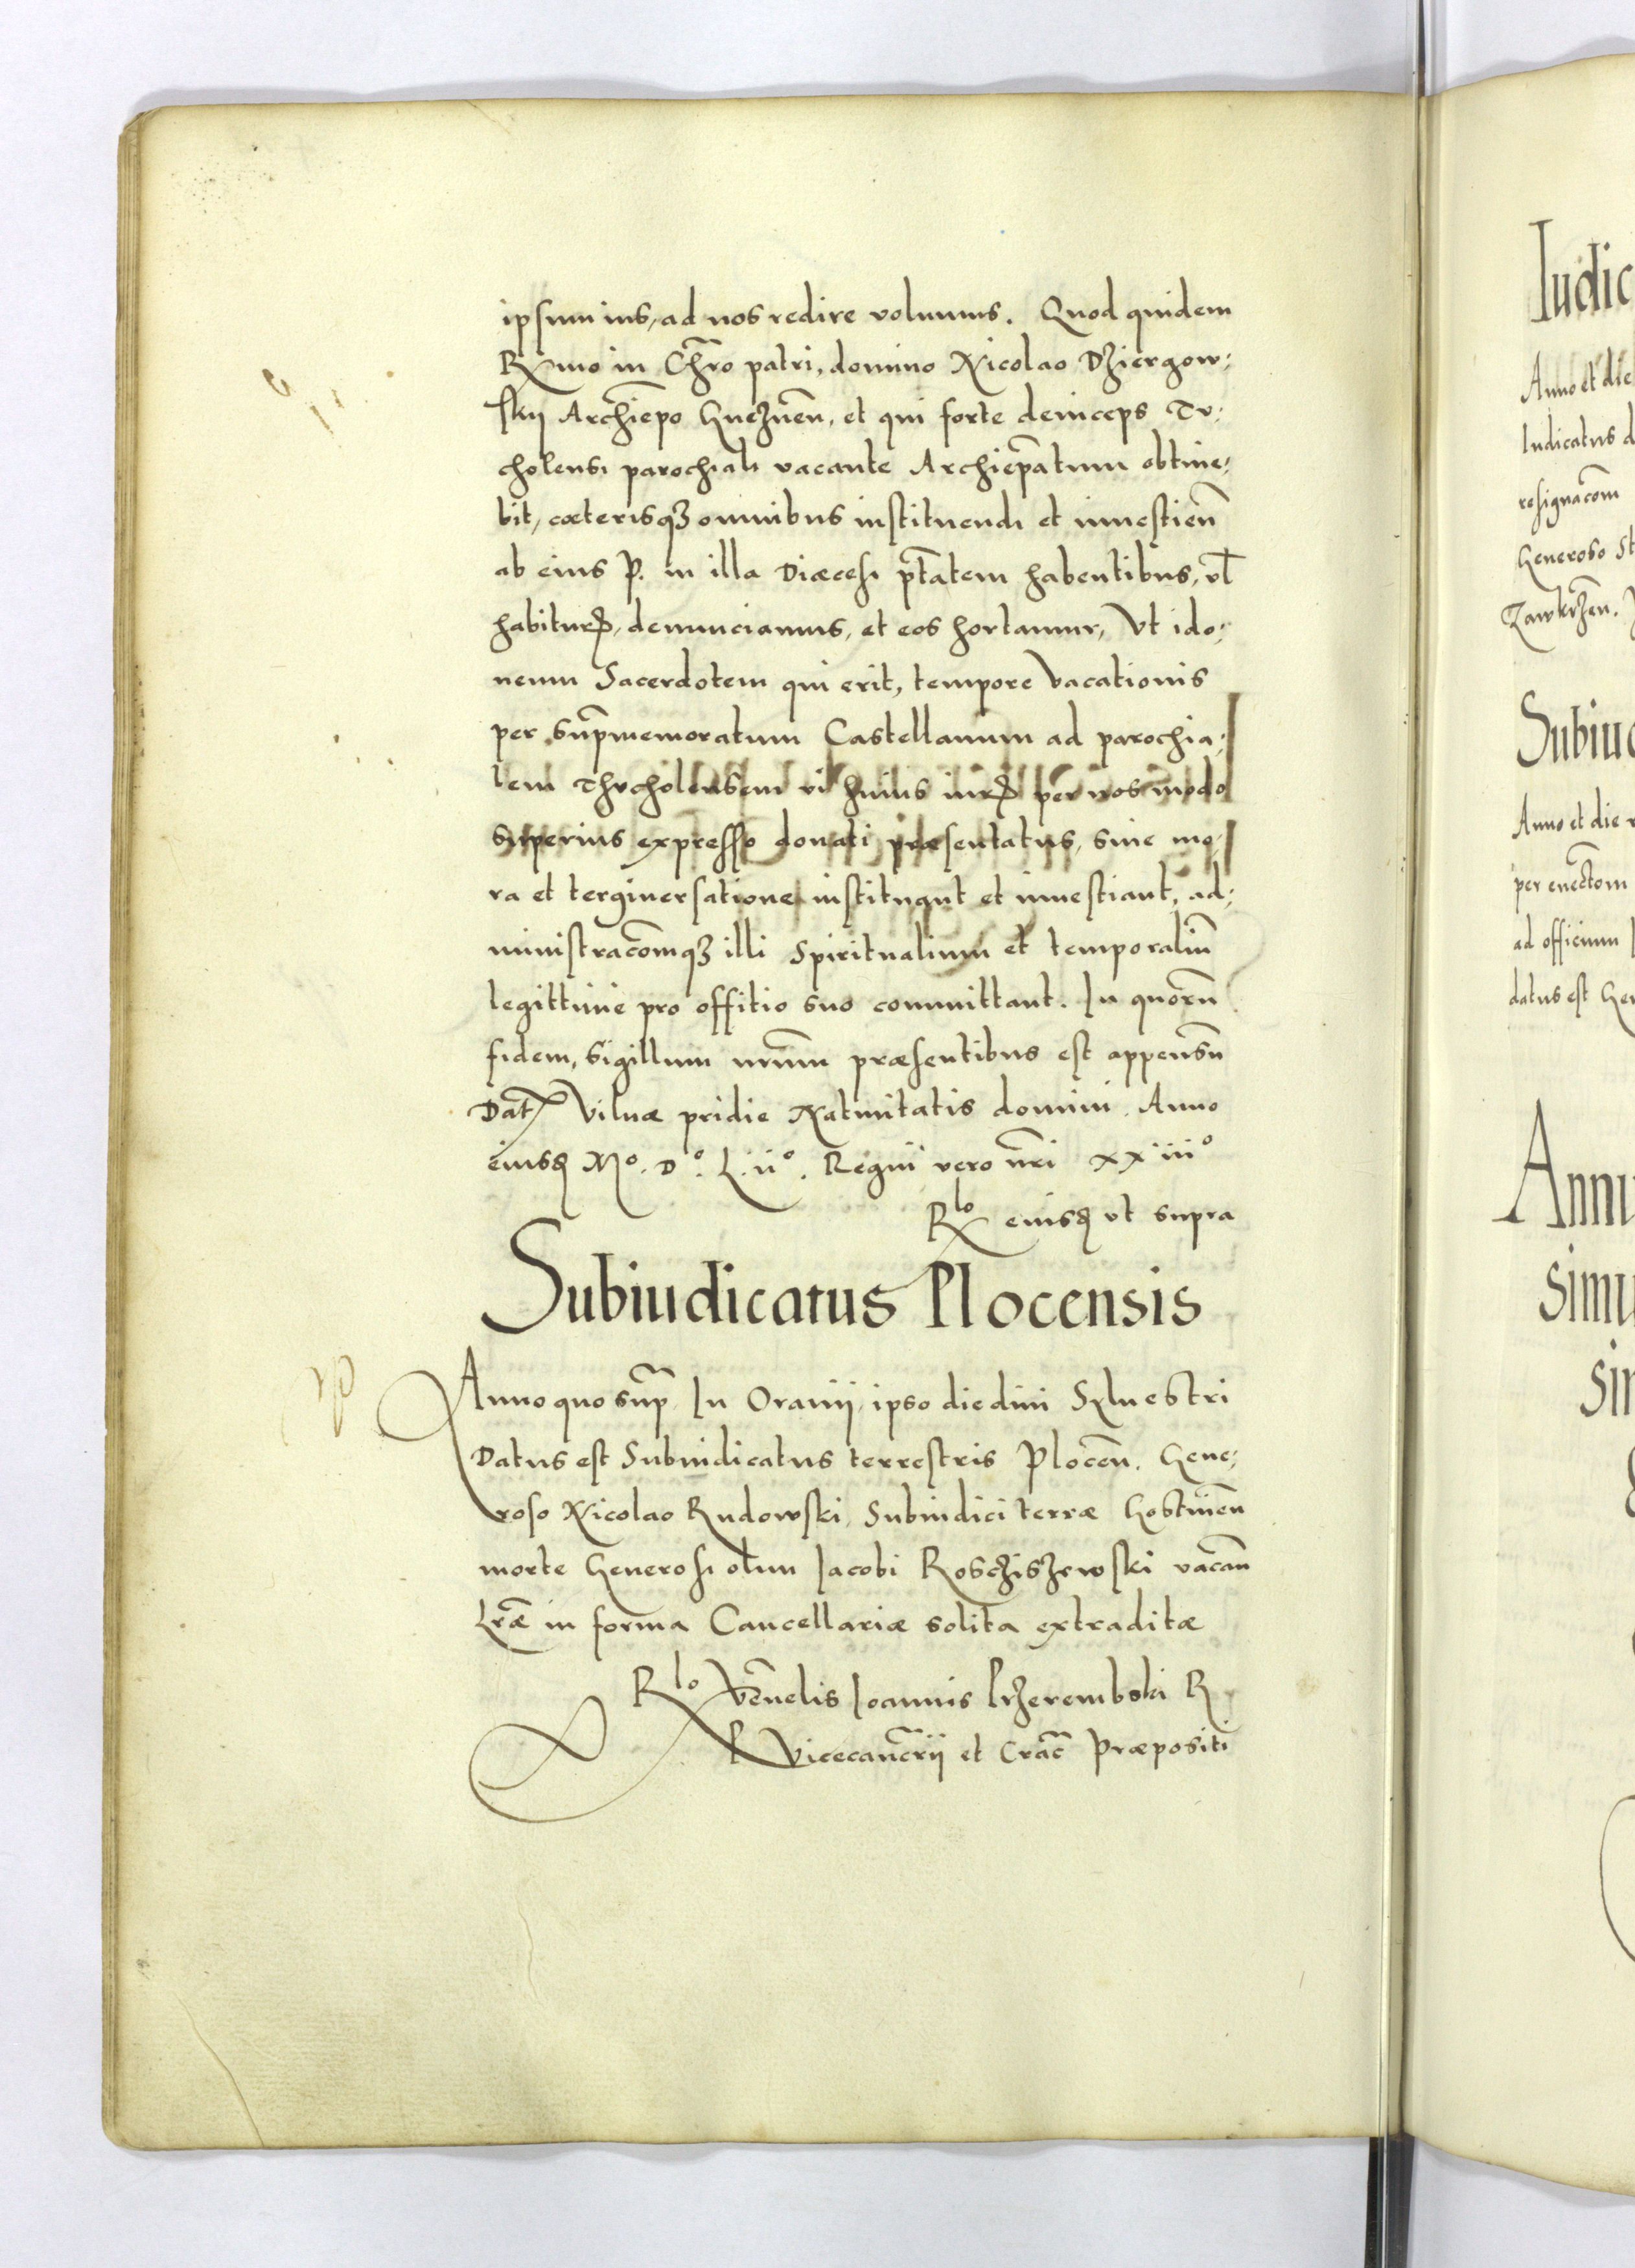 ipsum ius, ad nos redire volumus. Quod quidem
Rx̃mo in Chr̃o patri, domino Nicolao Dziergow⸗
skij Archiep̃o Gneznen̄, et qui forte deinceps Tu⸗
cholensi parochiali vacante Archiep̃atum obtine⸗
bit, cæterisqꝫ omnibus instituendi et inuestien̄
ab eius P. in illa Diæcesi pt̃atem habentibus, vl̃
habiturꝝ, denunciamus, et eos hortamur, Vt ido⸗
neum Sacerdotem qui erit, tempore Vacationis
per sup̃memoratum Castellanum ad parochia⸗
lem Thucholensem vi huius iurꝝ per nos modo
superius expresso donati præsentatus, sine mo⸗
ra et terginersatione instituant et inuestiant, ad⸗
ministrac̃omqꝫ illi Spiritualium et temporaliũ
legittime pro offitio suo committant. In quorũ
fidem, Sigillum nr̃um præsentibus est appensũ
Dat̃ Vilnæ pridie Natiuitatis domini. Anno
eiusd̃ Mᵒ. Dᵒ. L. iiᵒ. Regni vero nr̃i xxiiiᵒ
Rˡᵒ eiusd̃ vt supra
Subiudicatus Plocensis
Anno quo sup̃. In Oranij, ipso die diui Syluestri
Datus est Subiudicatus terrestris Plocen̄. Gene⸗
roso Nicolao Rudowski, Subiudici terræ Gostinen̄
morte Generosi olim Jacobi Roscziszewski vacan̄
Lr̃æ in forma Cancellariæ solita extraditæ
Rˡᵒ Ven̄elis Joannis Przerembski R
P Vicecanc̃rij et Crac̃ Præpositi
Iudic
Anno et die
Iudicatus d
resignac̃om
Generoso St
Zawkrzen̄.
Subiud
Anno et die
per euect̃om
ad officium
datus est Gen
Annu
simu
sin